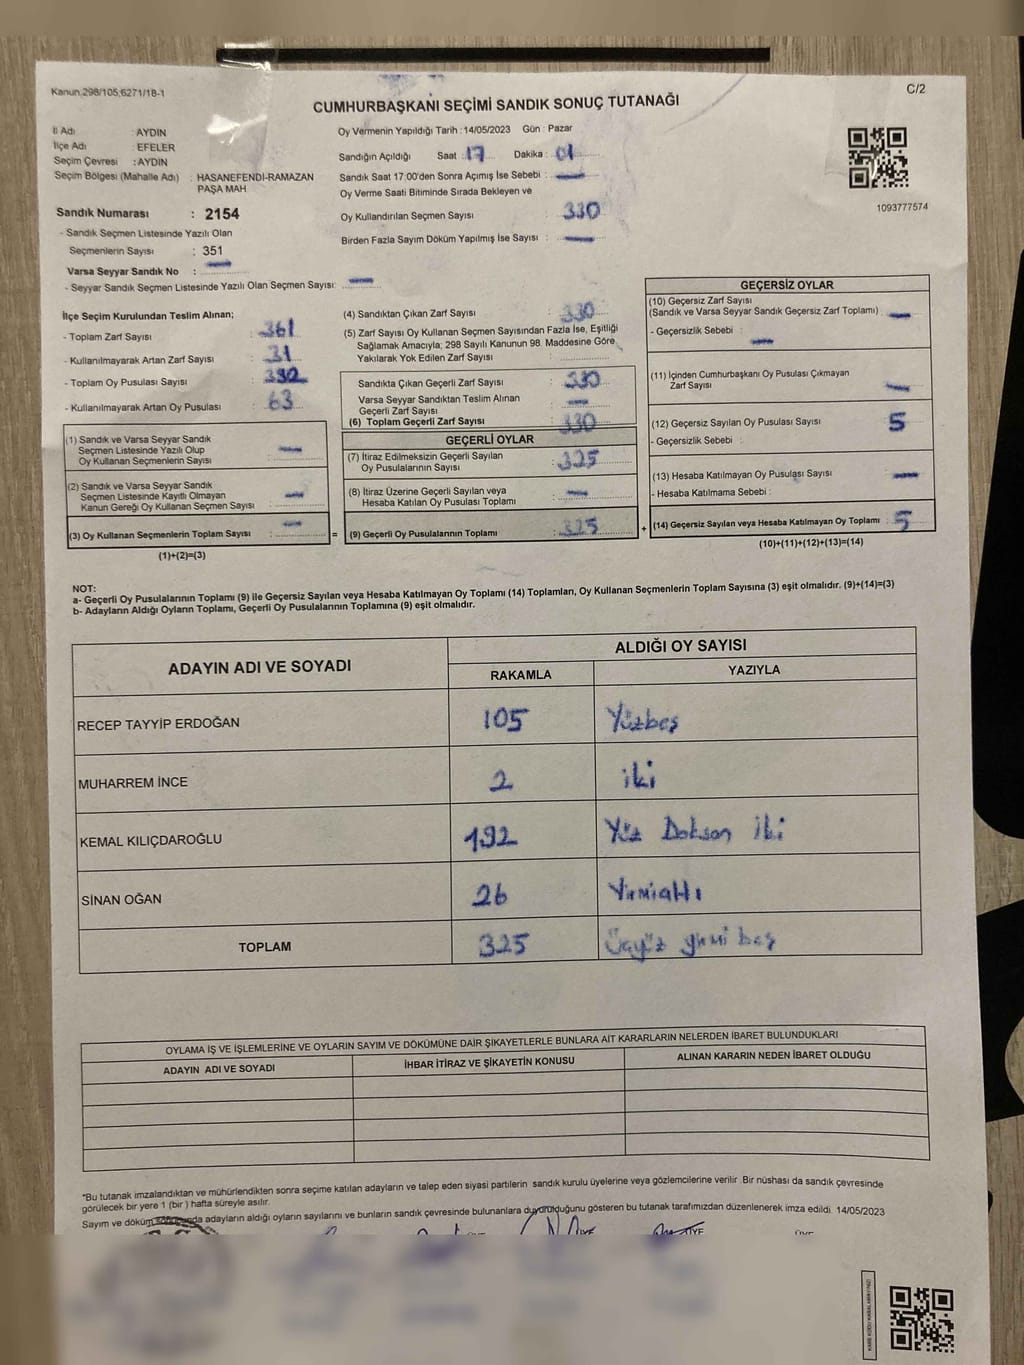 Kanun 298/105;6271/18-1
C/2
CUMHURBAŞKANI SEÇİMİ SANDIK SONUÇ TUTANAĞI
İl Adı : AYDIN
İlçe Adı : EFELER
Seçim Çevresi : AYDIN
Seçim Bölgesi (Mahalle Adı) : HASANEFENDİ-RAMAZAN
PAŞA MAH
Sandık Numarası : 2154
- Sandık Seçmen Listesinde Yazılı Olan
Seçmenlerin Sayısı : 351
Varsa Seyyar Sandık No : —
- Seyyar Sandık Seçmen Listesinde Yazılı Olan Seçmen Sayısı: —
Oy Vermenin Yapıldığı Tarih : 14/05/2023 Gün : Pazar
Sandığın Açıldığı Saat : 17 Dakika : 01
Sandık Saat 17:00'den Sonra Açımış İse Sebebi : —
Oy Verme Saati Bitiminde Sırada Bekleyen ve
Oy Kullandırılan Seçmen Sayısı : 330
Birden Fazla Sayım Döküm Yapılmış İse Sayısı : —
1093777574
İlçe Seçim Kurulundan Teslim Alınan;
- Toplam Zarf Sayısı : 361
- Kullanılmayarak Artan Zarf Sayısı : 31
- Toplam Oy Pusulası Sayısı : 392
- Kullanılmayarak Artan Oy Pusulası : 63
(1) Sandık ve Varsa Seyyar Sandık
Seçmen Listesinde Yazılı Olup
Oy Kullanan Seçmenlerin Sayısı : —
(2) Sandık ve Varsa Seyyar Sandık
Seçmen Listesinde Kayıtlı Olmayan
Kanun Gereği Oy Kullanan Seçmen Sayısı : —
(3) Oy Kullanan Seçmenlerin Toplam Sayısı : —
(1)+(2)=(3)
=
(4) Sandıktan Çıkan Zarf Sayısı : 330
(5) Zarf Sayısı Oy Kullanan Seçmen Sayısından Fazla İse, Eşitliği
Sağlamak Amacıyla; 298 Sayılı Kanunun 98. Maddesine Göre
Yakılarak Yok Edilen Zarf Sayısı :
Sandıkta Çıkan Geçerli Zarf Sayısı : 330
Varsa Seyyar Sandıktan Teslim Alınan
Geçerli Zarf Sayısı : —
(6) Toplam Geçerli Zarf Sayısı : 330
GEÇERLİ OYLAR
(7) İtiraz Edilmeksizin Geçerli Sayılan
Oy Pusulalarının Sayısı : 325
(8) İtiraz Üzerine Geçerli Sayılan veya
Hesaba Katılan Oy Pusulası Toplamı : —
(9) Geçerli Oy Pusulalarının Toplamı : 325
+
GEÇERSİZ OYLAR
(10) Geçersiz Zarf Sayısı
(Sandık ve Varsa Seyyar Sandık Geçersiz Zarf Toplamı) : —
- Geçersizlik Sebebi : —
(11) İçinden Cumhurbaşkanı Oy Pusulası Çıkmayan
Zarf Sayısı : —
(12) Geçersiz Sayılan Oy Pusulası Sayısı : 5
- Geçersizlik Sebebi :
(13) Hesaba Katılmayan Oy Pusulası Sayısı : —
- Hesaba Katılmama Sebebi :
(14) Geçersiz Sayılan veya Hesaba Katılmayan Oy Toplamı : 5
(10)+(11)+(12)+(13)=(14)
NOT:
a- Geçerli Oy Pusulalarının Toplamı (9) ile Geçersiz Sayılan veya Hesaba Katılmayan Oy Toplamı (14) Toplamları, Oy Kullanan Seçmenlerin Toplam Sayısına (3) eşit olmalıdır. (9)+(14)=(3)
b- Adayların Aldığı Oyların Toplamı, Geçerli Oy Pusulalarının Toplamına (9) eşit olmalıdır.
ADAYIN ADI VE SOYADI ALDIĞI OY SAYISI
RAKAMLA YAZIYLA
RECEP TAYYİP ERDOĞAN 105 Yüzbeş
MUHARREM İNCE 2 iki
KEMAL KILIÇDAROĞLU 192 Yüz Doksan İki
SİNAN OĞAN 26 Yirmialtı
TOPLAM 325 Üçyüz yirmi beş
OYLAMA İŞ VE İŞLEMLERİNE VE OYLARIN SAYIM VE DÖKÜMÜNE DAİR ŞİKAYETLERLE BUNLARA AİT KARARLARIN NELERDEN İBARET BULUNDUKLARI
ADAYIN ADI VE SOYADI İHBAR İTİRAZ VE ŞİKAYETİN KONUSU ALINAN KARARIN NEDEN İBARET OLDUĞU
*Bu tutanak imzalandıktan ve mühürlendikten sonra seçime katılan adayların ve talep eden siyasi partilerin sandık kurulu üyelerine veya gözlemcilerine verilir. Bir nüshası da sandık çevresinde
görülecek bir yere 1 (bir) hafta süreyle asılır.
Sayım ve döküm sonucunda adayların aldığı oyların sayılarını ve bunların sandık çevresinde bulunanlara duyurulduğunu gösteren bu tutanak tarafımızdan düzenlenerek imza edildi. 14/05/2023